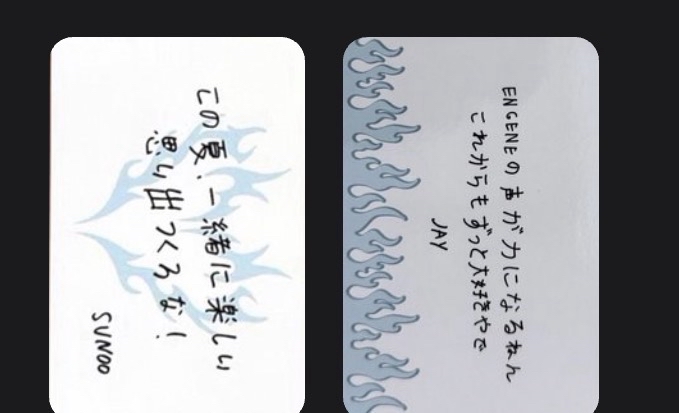 この夏、一緒に楽しい
思い出つくろな!
SUNOO
ENGENEの声が力になるねん
これからもずっと大好きやで
JAY